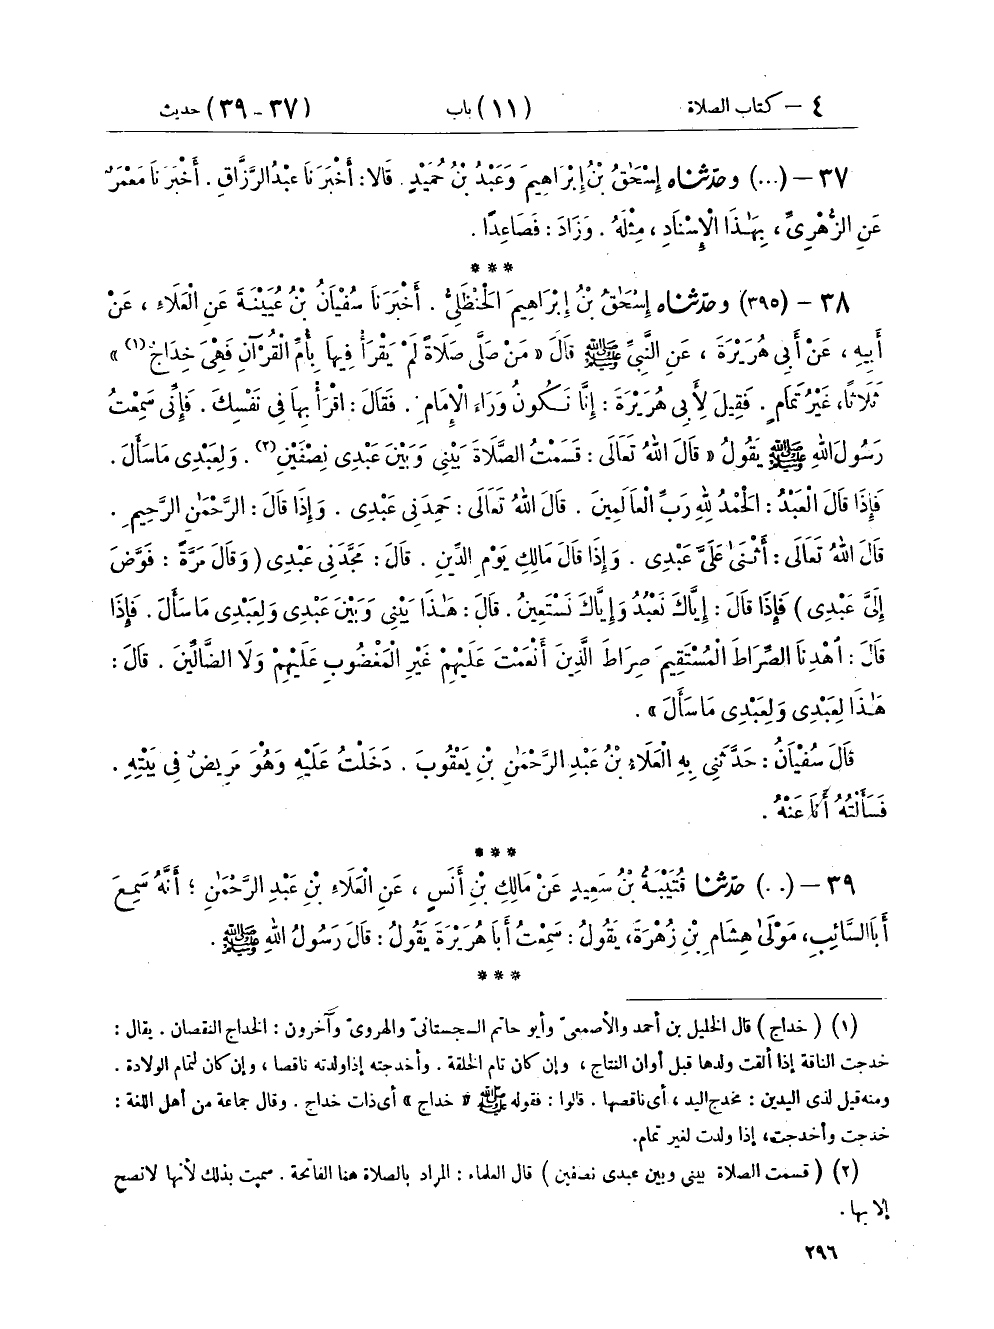 ٤ – كتاب الصلاة (١١) باب (٣٧ - ٣٩) حديث
٣٧ – (...) وحدّثناه إِسْحَٰقُ بْنُ إِبْرَاهِيمَ وَعَبْدُ بْنُ حُمَيْدٍ. قَالَا: أَخْبَرَنَا عَبْدُ الرَّزَّاقِ. أَخْبَرَنَا مَعْمَرٌ
عَنِ الزُّهْرِىِّ، بِهَٰذَا الْإِسْنَادِ، مِثْلَهُ. وَزَادَ: فَصَاعِدًا.
***
٣٨ – (٣٩٥) وحدّثناه إِسْحَٰقُ بْنُ إِبْرَاهِيمَ الْحَنْظَلِىُّ. أَخْبَرَنَا سُفْيَانُ بْنُ عُيَيْنَةَ عَنِ الْعَلَاءِ، عَنْ
أَبِيهِ، عَنْ أَبِى هُرَيْرَةَ، عَنِ النَّبِىِّ ﷺ قَالَ «مَنْ صَلَّى صَلَاةً لَمْ يَقْرَأْ فِيهَا بِأُمِّ الْقُرْآنِ فَهْىَ خِدَاجٌ(١)»
ثَلَاثًا، غَيْرُ تَمَامٍ. فَقِيلَ لِأَبِى هُرَيْرَةَ: إِنَّا نَكُونُ وَرَاءَ الْإِمَامِ. فَقَالَ: اقْرَأْ بِهَا فِى نَفْسِكَ. فَإِنِّى سَمِعْتُ
رَسُولَ اللهِ ﷺ يَقُولُ «قَالَ اللهُ تَعَالَى: قَسَمْتُ الصَّلَاةَ بَيْنِى وَبَيْنَ عَبْدِى نِصْفَيْنِ(٢). وَلِعَبْدِى مَا سَأَلَ.
فَإِذَا قَالَ الْعَبْدُ: الْحَمْدُ لِلهِ رَبِّ الْعَالَمِينَ. قَالَ اللهُ تَعَالَى: حَمِدَنِى عَبْدِى. وَإِذَا قَالَ: الرَّحْمَٰنِ الرَّحِيمِ.
قَالَ اللهُ تَعَالَى: أَثْنَىٰ عَلَىَّ عَبْدِى. وَإِذَا قَالَ مَالِكِ يَوْمِ الدِّينِ. قَالَ: مَجَّدَنِى عَبْدِى (وَقَالَ مَرَّةً: فَوَّضَ
إِلَىَّ عَبْدِى) فَإِذَا قَالَ: إِيَّاكَ نَعْبُدُ وَإِيَّاكَ نَسْتَعِينُ. قَالَ: هَٰذَا بَيْنِى وَبَيْنَ عَبْدِى وَلِعَبْدِى مَا سَأَلَ. فَإِذَا
قَالَ: اهْدِنَا الصِّرَاطَ الْمُسْتَقِيمَ صِرَاطَ الَّذِينَ أَنْعَمْتَ عَلَيْهِمْ غَيْرِ الْمَغْضُوبِ عَلَيْهِمْ وَلَا الضَّالِّينَ. قَالَ:
هَٰذَا لِعَبْدِى وَلِعَبْدِى مَا سَأَلَ».
قَالَ سُفْيَانُ: حَدَّثَنِى بِهِ الْعَلَاءُ بْنُ عَبْدِ الرَّحْمَٰنِ بْنِ يَعْقُوبَ. دَخَلْتُ عَلَيْهِ وَهْوَ مَرِيضٌ فِى بَيْتِهِ.
فَسَأَلْتُهُ أَنَا عَنْهُ.
***
٣٩ – (..) حدّثنا قُتَيْبَةُ بْنُ سَعِيدٍ عَنْ مَالِكِ بْنِ أَنَسٍ، عَنِ الْعَلَاءِ بْنِ عَبْدِ الرَّحْمَٰنِ؛ أَنَّهُ سَمِعَ
أَبَا السَّائِبِ، مَوْلَىٰ هِشَامِ بْنِ زُهْرَةَ، يَقُولُ: سَمِعْتُ أَبَا هُرَيْرَةَ يَقُولُ: قَالَ رَسُولُ اللهِ ﷺ.
***
(١) (خداج) قال الخليل بن أحمد والأصمعىّ وأبو حاتم السجستانىّ والهروىّ وآخرون: الخداج النقصان. يقال:
خدجت الناقة إذا ألقت ولدها قبل أوان النتاج، وإن كان تام الخلقة. وأخدجته إذا ولدته ناقصا، وإن كان لتمام الولادة.
ومنه قيل لذى اليدين: مخدج اليد، أى ناقصها. قالوا: فقوله ﷺ «خداج» أى ذات خداج. وقال جماعة من أهل اللغة:
خدجت وأخدجت، إذا ولدت لغير تمام.
(٢) (قسمت الصلاة بينى وبين عبدى نصفين) قال العلماء: المراد بالصلاة هنا الفاتحة. سميت بذلك لأنها لا تصح
إلا بها.
٢٩٦